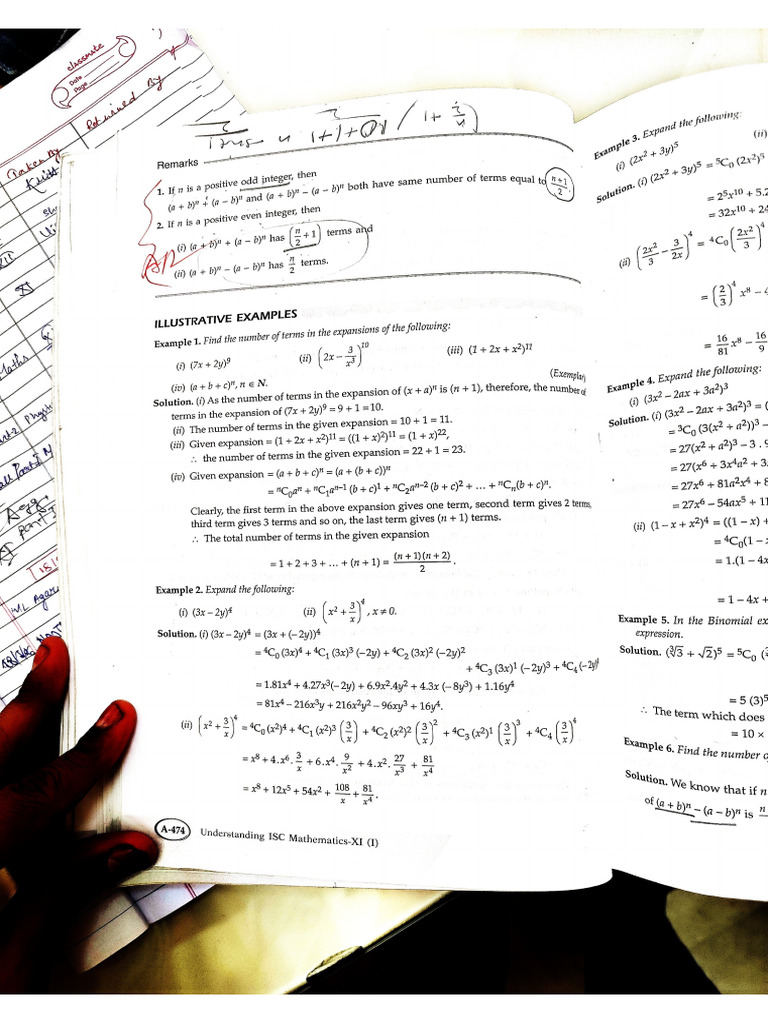 classmate
Date
Page
Returned By
Taken By
Remarks
1. If n is a positive odd integer, then
(a + b)ⁿ + (a – b)ⁿ and (a + b)ⁿ – (a – b)ⁿ both have same number of terms equal to (n+1)/2.
2. If n is a positive even integer, then
(i) (a + b)ⁿ + (a – b)ⁿ has (n/2 + 1) terms and
(ii) (a + b)ⁿ – (a – b)ⁿ has n/2 terms.
ILLUSTRATIVE EXAMPLES
Example 1. Find the number of terms in the expansions of the following:
(i) (7x + 2y)⁹ (ii) (2x – 3/x³)¹⁰ (iii) (1 + 2x + x²)¹¹
(iv) (a + b + c)ⁿ, n ∈ N. (Exemplar)
Solution. (i) As the number of terms in the expansion of (x + a)ⁿ is (n + 1), therefore, the number of
terms in the expansion of (7x + 2y)⁹ = 9 + 1 = 10.
(ii) The number of terms in the given expansion = 10 + 1 = 11.
(iii) Given expansion = (1 + 2x + x²)¹¹ = ((1 + x)²)¹¹ = (1 + x)²²,
∴ the number of terms in the given expansion = 22 + 1 = 23.
(iv) Given expansion = (a + b + c)ⁿ = (a + (b + c))ⁿ
= ⁿC₀aⁿ + ⁿC₁aⁿ⁻¹ (b + c)¹ + ⁿC₂aⁿ⁻² (b + c)² + ... + ⁿCₙ(b + c)ⁿ.
Clearly, the first term in the above expansion gives one term, second term gives 2 terms,
third term gives 3 terms and so on, the last term gives (n + 1) terms.
∴ The total number of terms in the given expansion
= 1 + 2 + 3 + ... + (n + 1) = (n + 1)(n + 2)/2.
Example 2. Expand the following:
(i) (3x – 2y)⁴ (ii) (x² + 3/x)⁴, x ≠ 0.
Solution. (i) (3x – 2y)⁴ = (3x + (–2y))⁴
= ⁴C₀ (3x)⁴ + ⁴C₁ (3x)³ (–2y) + ⁴C₂ (3x)² (–2y)²
+ ⁴C₃ (3x)¹ (–2y)³ + ⁴C₄ (–2y)⁴
= 1.81x⁴ + 4.27x³(–2y) + 6.9x².4y² + 4.3x (–8y³) + 1.16y⁴
= 81x⁴ – 216x³y + 216x²y² – 96xy³ + 16y⁴.
(ii) (x² + 3/x)⁴ = ⁴C₀ (x²)⁴ + ⁴C₁ (x²)³ (3/x) + ⁴C₂ (x²)² (3/x)² + ⁴C₃ (x²)¹ (3/x)³ + ⁴C₄ (3/x)⁴
= x⁸ + 4.x⁶. 3/x + 6.x⁴. 9/x² + 4.x². 27/x³ + 81/x⁴
= x⁸ + 12x⁵ + 54x² + 108/x + 81/x⁴.
A-474 Understanding ISC Mathematics-XI (I)
Example 3. Expand the following:
(i) (2x² + 3y)⁵ (ii)
Solution. (i) (2x² + 3y)⁵ = ⁵C₀ (2x²)⁵
= 2⁵x¹⁰ + 5.2
= 32x¹⁰ + 24
(ii) (2x²/3 – 3/2x)⁴ = ⁴C₀ (2x²/3)⁴
= (2/3)⁴ x⁸ – 4
= 16/81 x⁸ – 16/9
Example 4. Expand the following:
(i) (3x² – 2ax + 3a²)³
Solution. (i) (3x² – 2ax + 3a²)³ = (
= ³C₀ (3(x² + a²))³ –
= 27(x² + a²)³ – 3 . 9
= 27(x⁶ + 3x⁴a² + 3
= 27x⁶ + 81a²x⁴ + 8
= 27x⁶ – 54ax⁵ + 11
(ii) (1 – x + x²)⁴ = ((1 – x) +
= ⁴C₀(1 – x
= 1.(1 – 4x
= 1 – 4x +
Example 5. In the Binomial ex
expression.
Solution. (∛3 + √2)⁵ = ⁵C₀ (
= 5 (3)⁵
∴ The term which does
= 10 ×
Example 6. Find the number o
Solution. We know that if n
of (a + b)ⁿ – (a – b)ⁿ is n